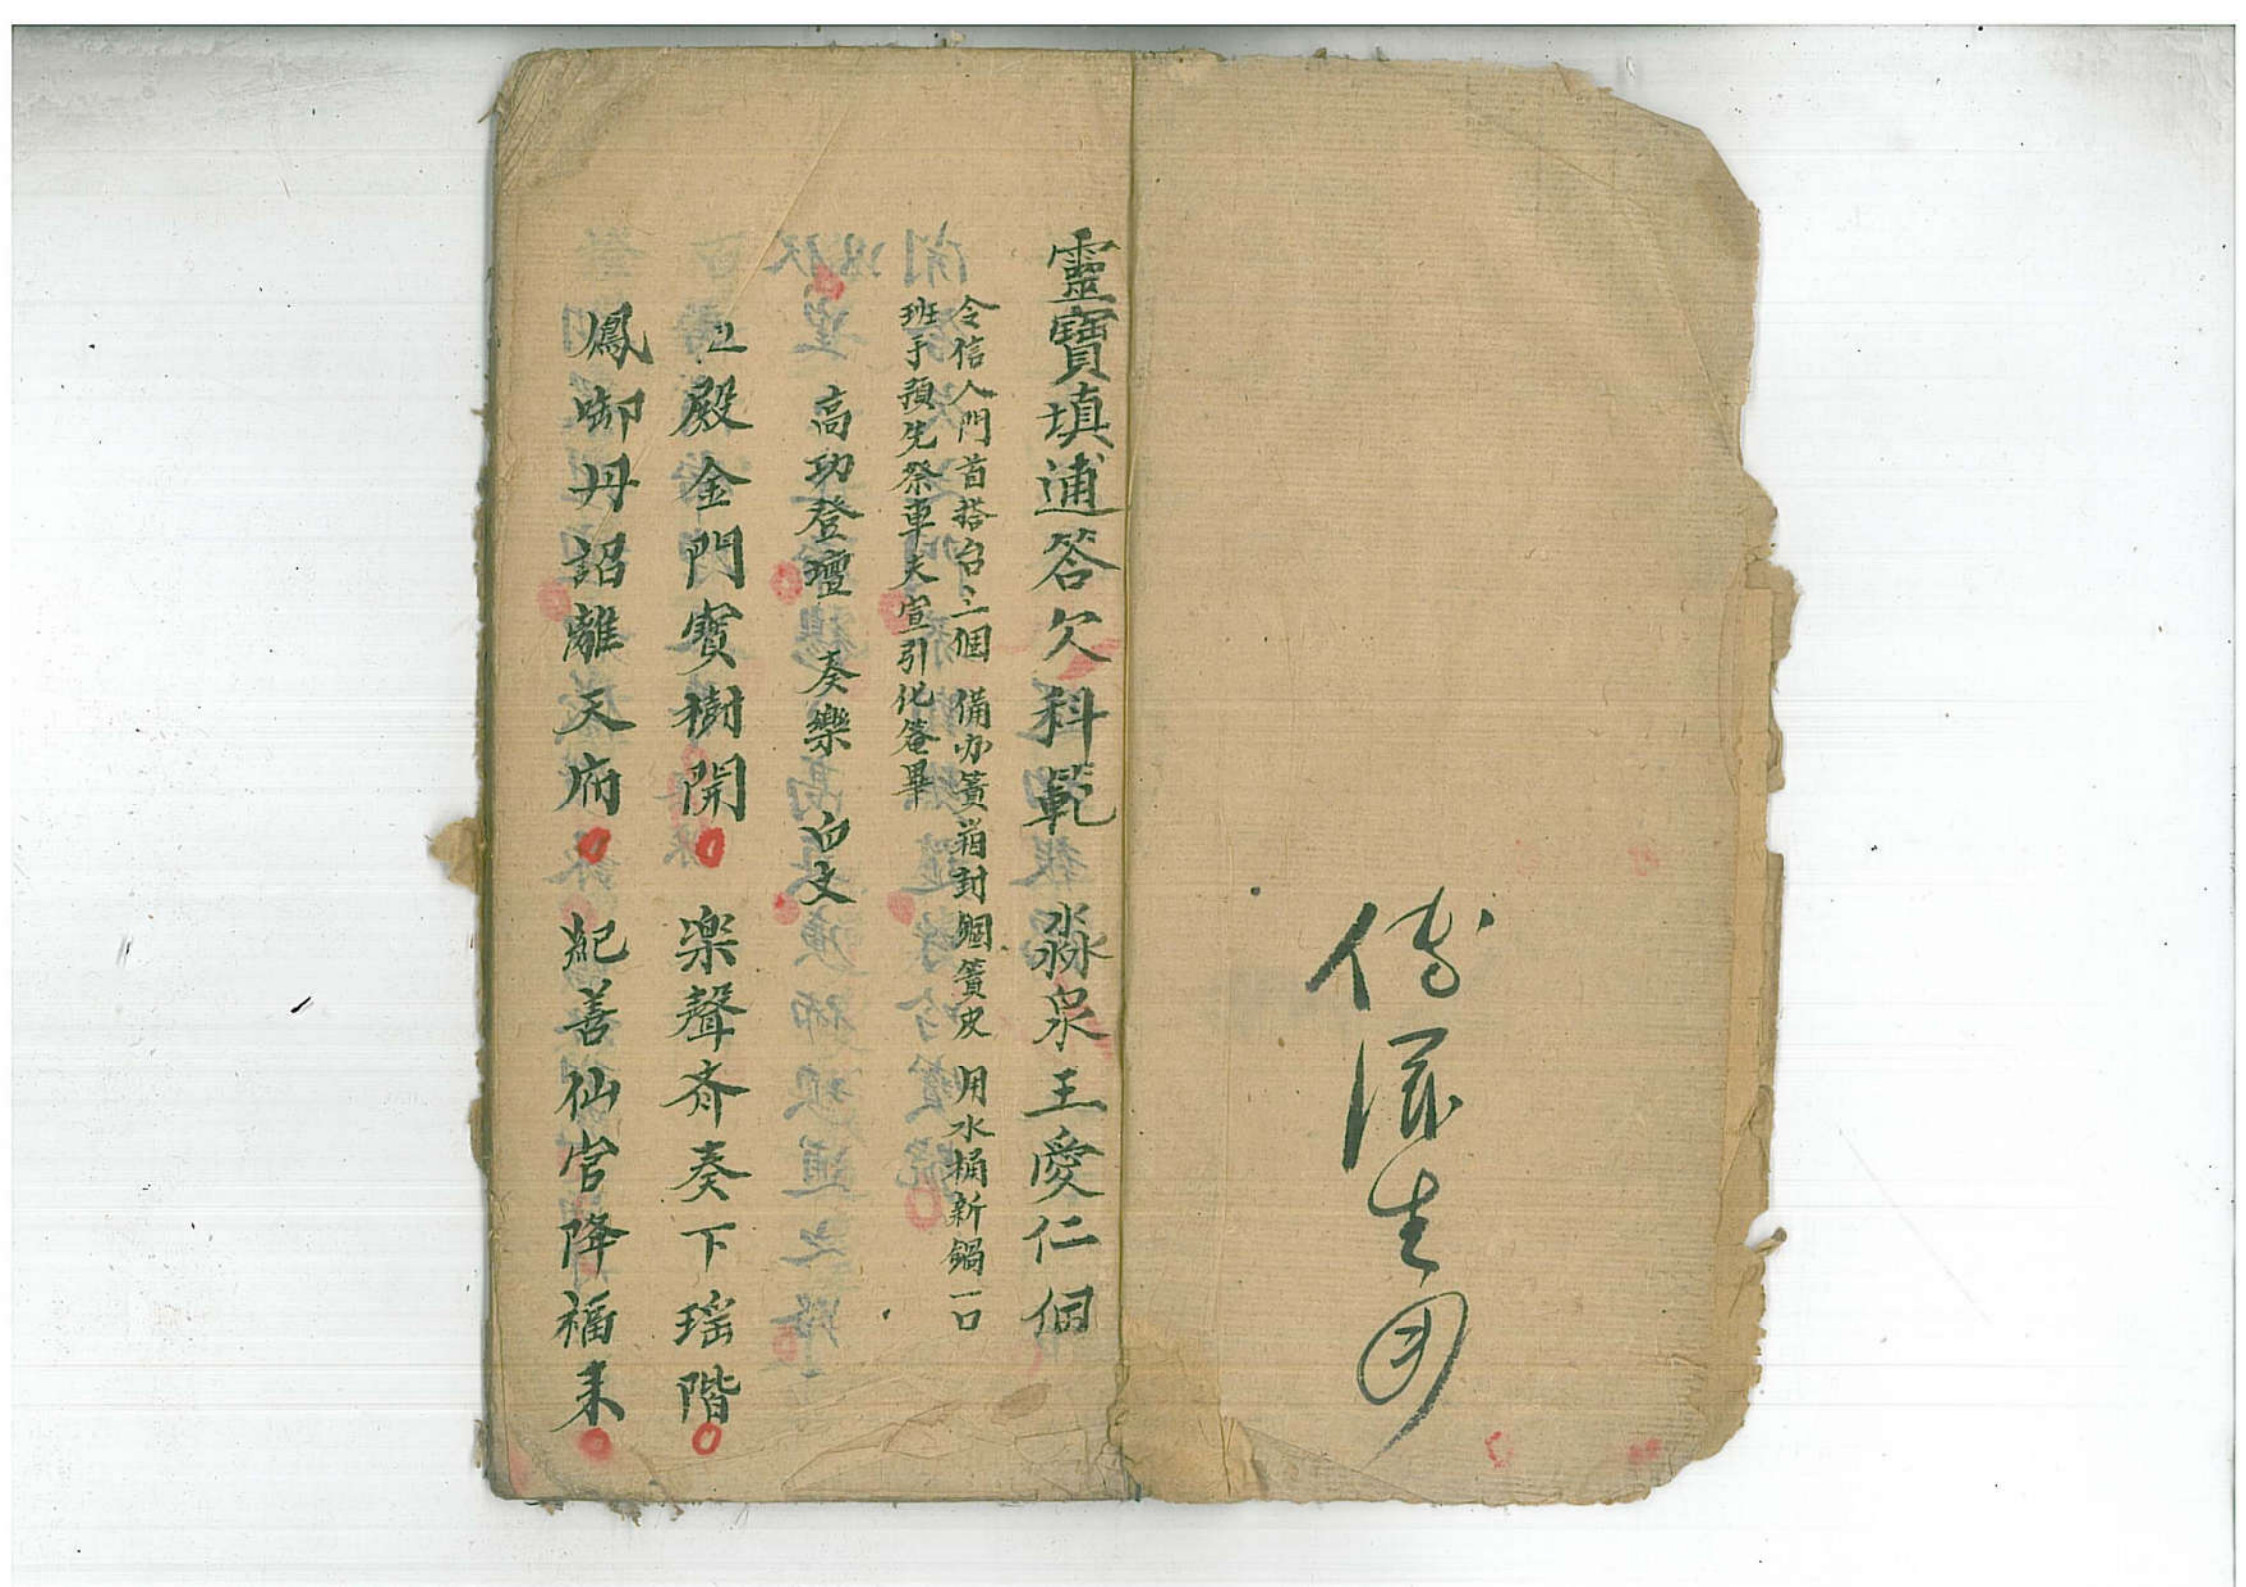 傅深生用
靈寶填逋答欠科範 淼泉王愛仁個
令信人門首搭台三個 備办簣箱封錮簣皮 用水桶新鍋一口
班手預先祭車夫宣引化菴畢
高功登壇 奏樂 白文
上殿金門寳樹開 楽聲齐奏下瑶階
鳳啣丹詔離天府 紀善仙官降福来